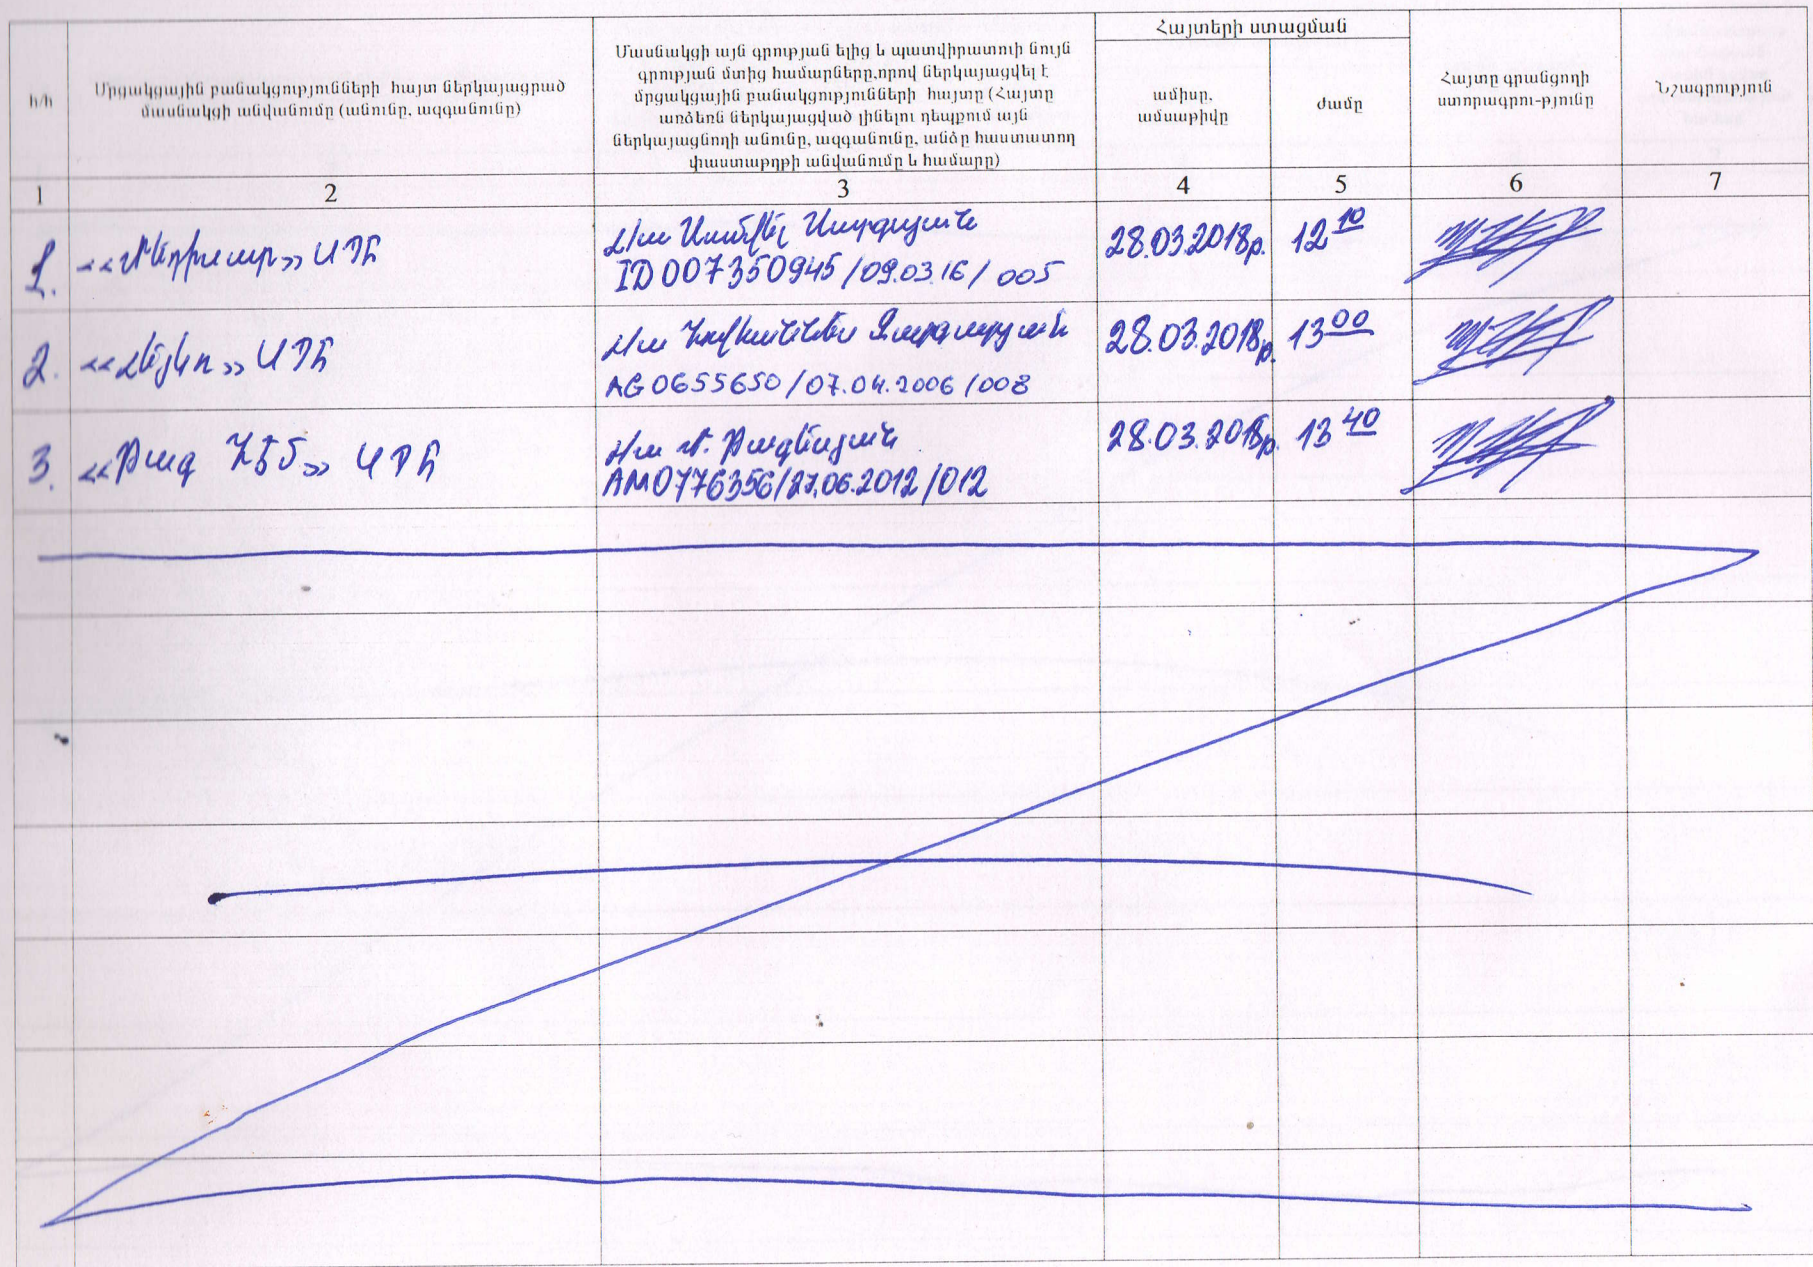 հ/հ
Մրցակցային բանակցությունների հայտ ներկայացրած
մասնակցի անվանումը (անունը, ազգանունը)
Մասնակցի այն գրության ելից և պատվիրատուի նույն
գրության մտից համարները,որով ներկայացվել է
մրցակցային բանակցությունների հայտը (Հայտը
առձեռն ներկայացված լինելու դեպքում այն
ներկայացնողի անունը, ազգանունը, անձը հաստատող
փաստաթղթի անվանումը և համարը)
Հայտերի ստացման
ամիսը,
ամսաթիվը
ժամը
Հայտը գրանցողի
ստորագրու-թյունը
Նշագրություն
1 2 3 4 5 6 7
1. <<Մեդիսար>> ՍՊԸ
Լ/ա Սամվել Սարգսյան
ID 007350945/09.03.16/005
28.03.2018թ. 12 10
2. <<Լեյկո>> ՍՊԸ
Լ/ա Հովհաննես Զարգարյան
AG0655650/07.04.2006/008
28.03.2018թ. 13 00
3. <<Թագ ՀԷՄ>> ՍՊԸ
Լ/ա Մ. Թագեսյան
AM0776356/27.06.2012/012
28.03.2018թ. 13 40